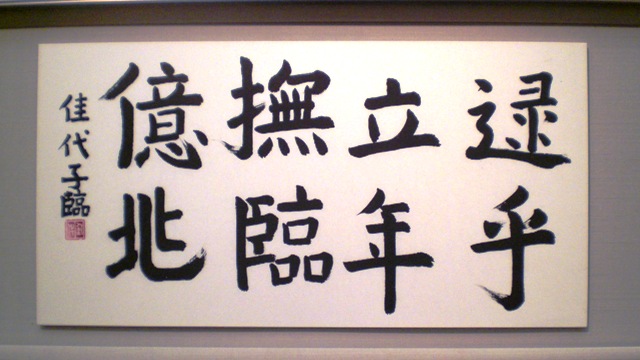 逮乎
立年
撫臨
億兆
佳代子臨